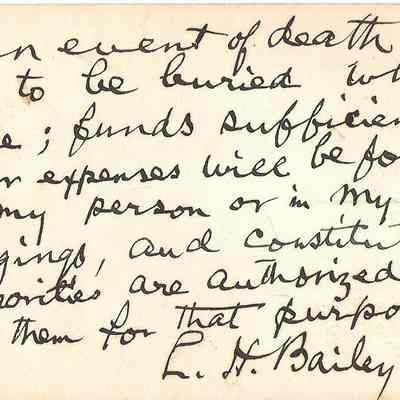 n event of death
to be buried wh
e; funds sufficien
r expenses will be fo
my person or in my
gings, and constitut
orities are authorized
them for that purpo
L. H. Bailey